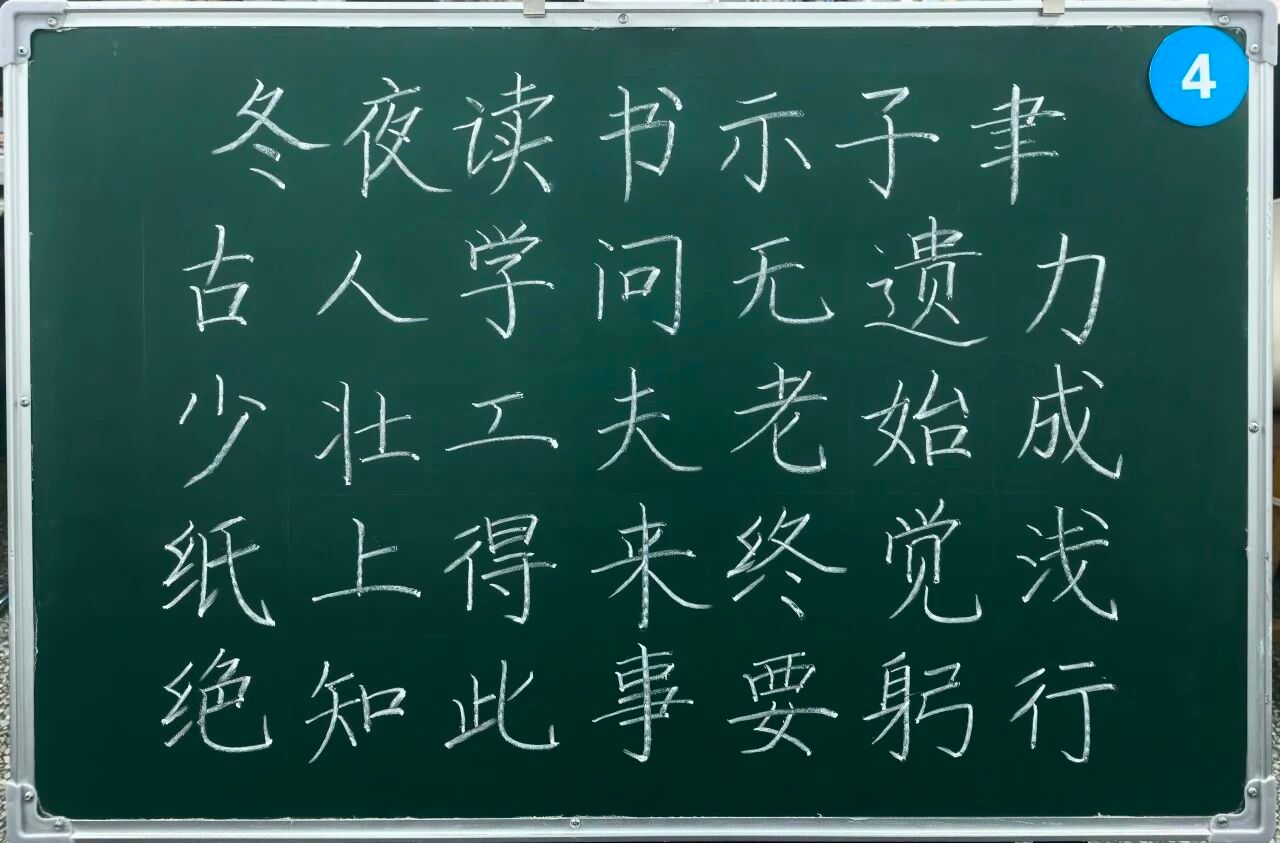 4
冬夜读书示子聿
古人学问无遗力
少壮工夫老始成
纸上得来终觉浅
绝知此事要躬行